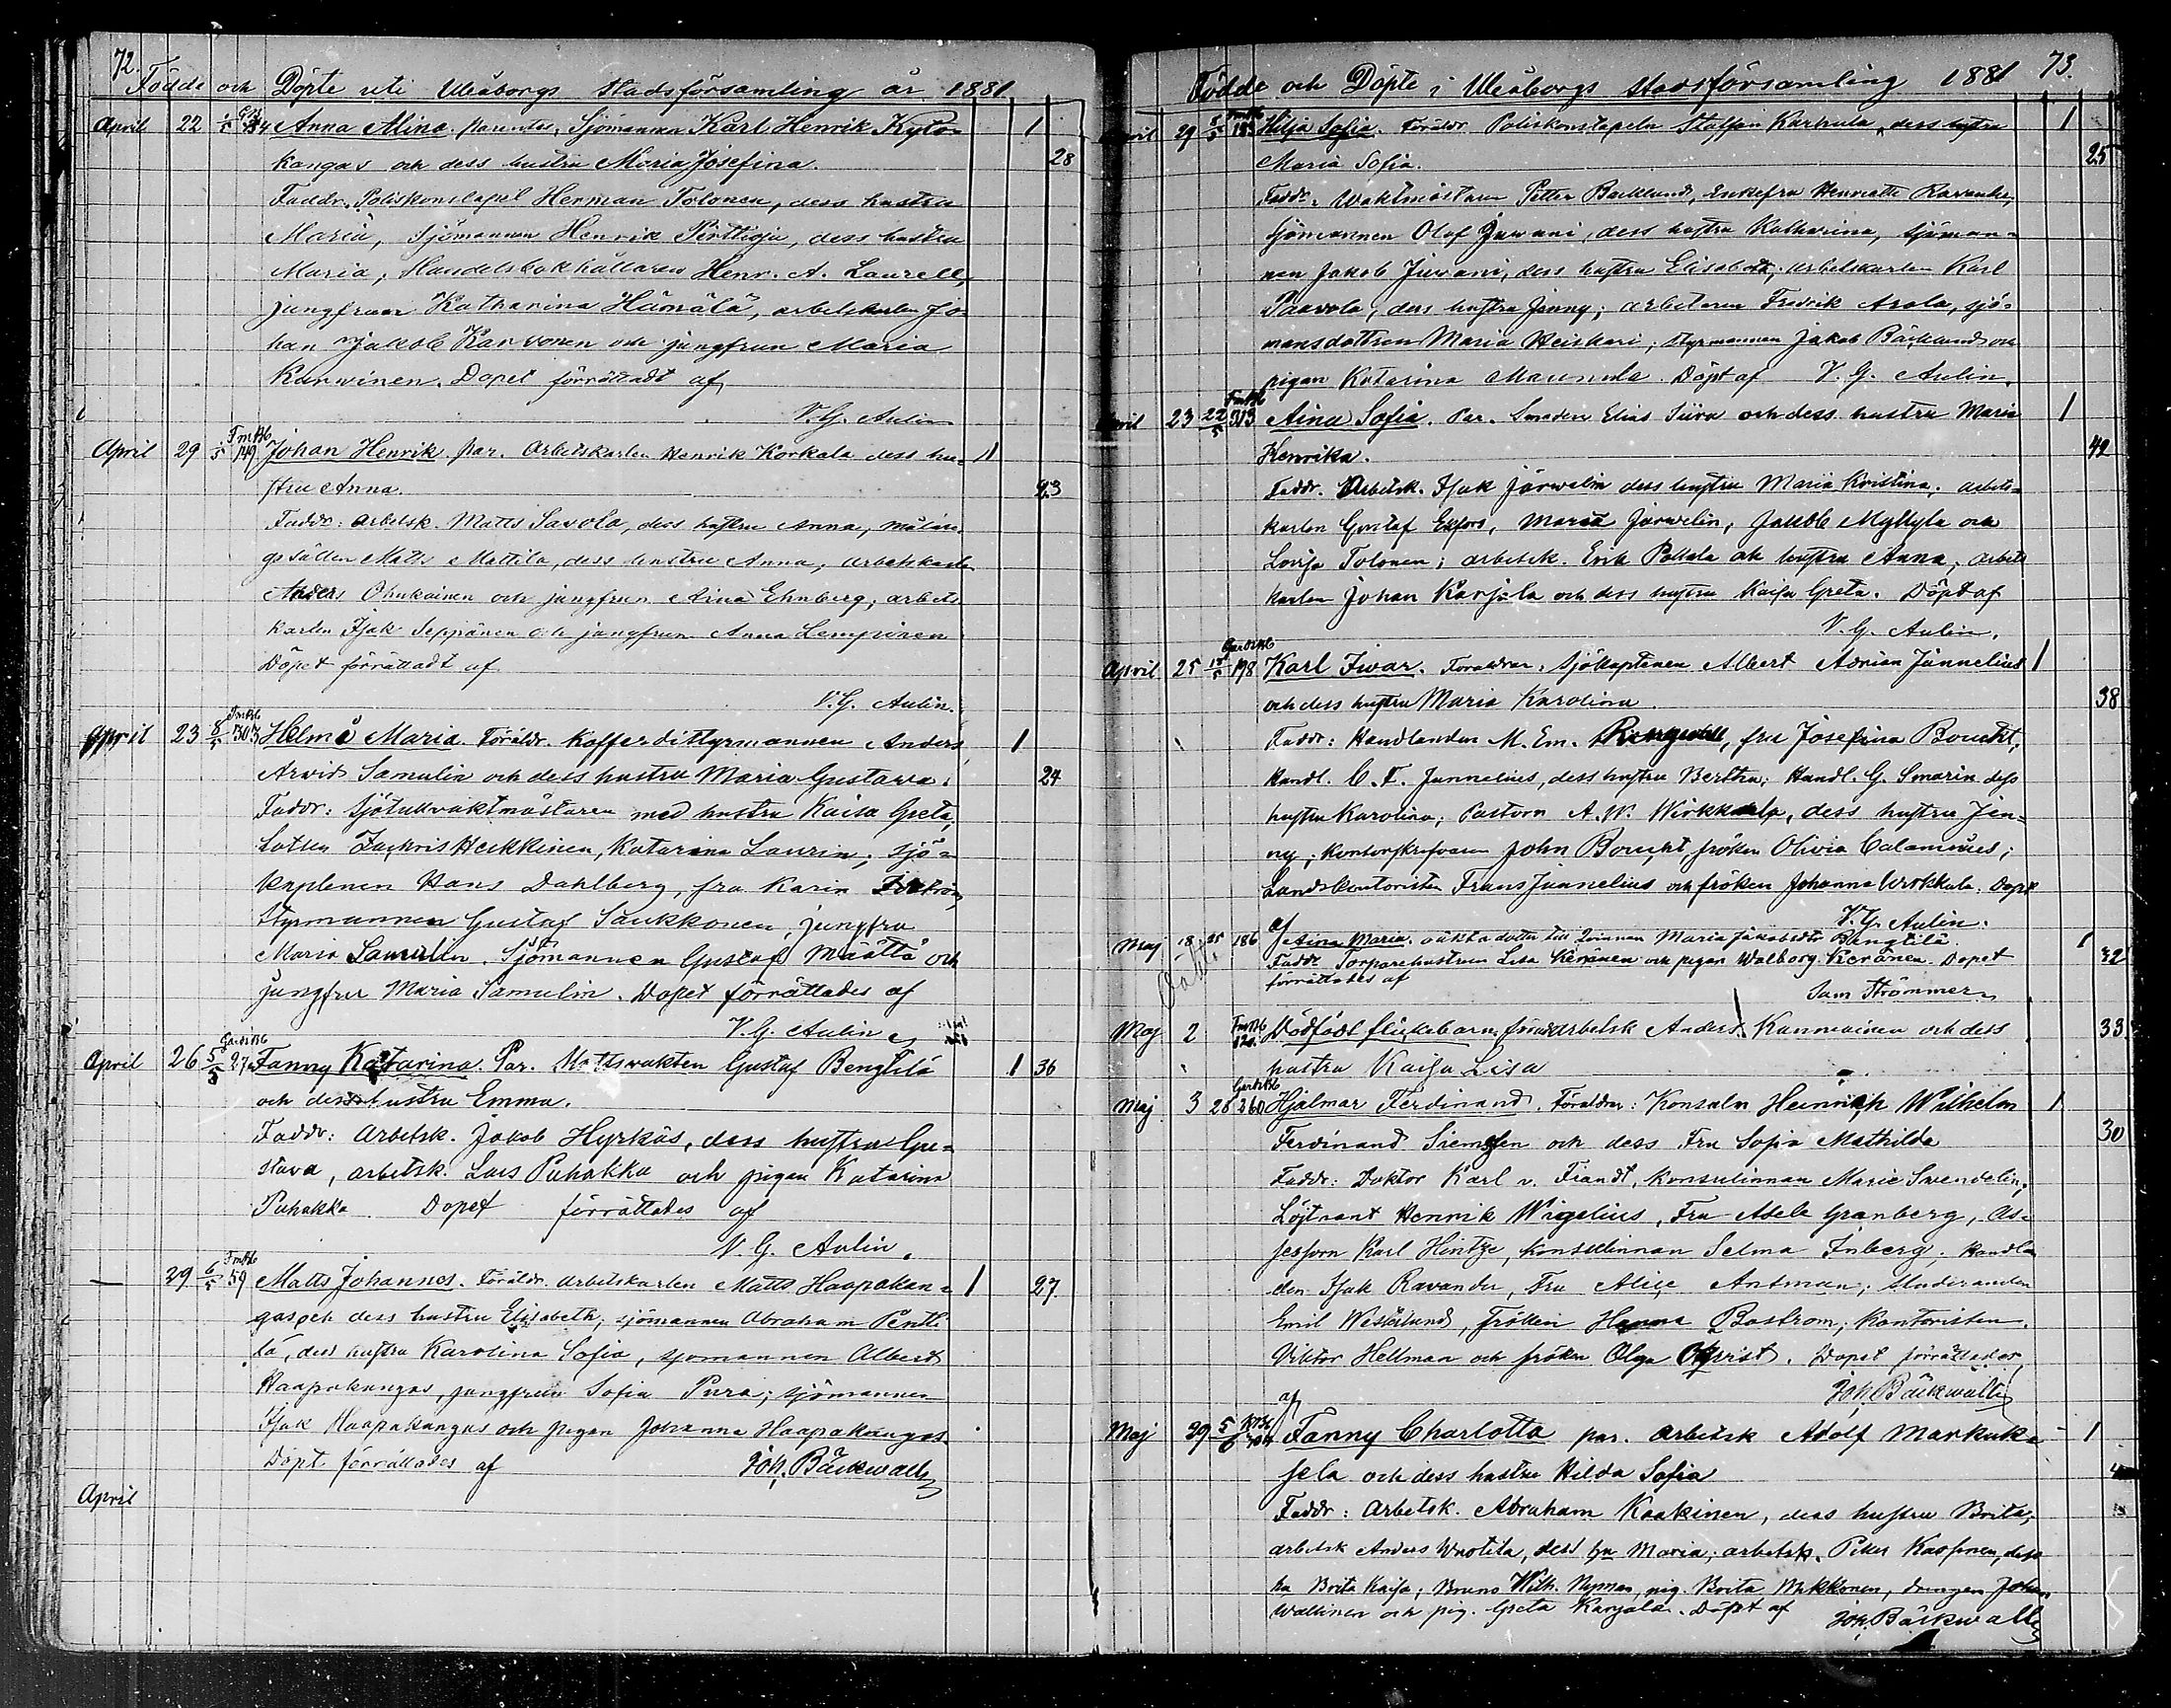 72.
Födde och Döpte uti Uleåborgs stadsförsamling år 1881
April 22 1/5 Anna Alina. parentes, Sjömannen Karl Henrik Kyto- 1
kangas och dess hustru Maria Josefina. 28
Faddr. Poliskonstapel Herman Tolonen, dess hustru
Maria, Sjömannen Henrik Pirttioja, dess hustru
Maria, Handelsbokhållaren Henr. A. Laurell,
jungfrun Katharina Hämälä, arbetskarlen Jo-
han Jakob Karvonen och jungfrun Maria
Karwinen. Dopet förrättadt af
V. G. Aulin
April 29 1/5 FmKb 149 Johan Henrik. par. Arbetskarlen Henrik Korkala dess hu- 1
stru Anna. 23
Faddr: arbetsk. Matts Savola, dess hustru Anna, målare-
gesällen Matts Mattila, dess hustru Anna, arbetskarlen
Anders Ohukainen och jungfrun Aina Ehnberg, arbets
karlen Isak Seppänen och jungfrun Anna Lempinen
Döpet förrättadt af
V. G. Aulin.
April 23 8/5 FmKb 303 Helmi Maria. Föräldr. Kofferdistyrmannen Anders 1
Arvid Samulin och dess hustru Maria Gustava. 24
Faddr: Sjötullvaktmästaren med hustru Kaisa Greta,
Lotsen Zachris Heikkinen, Katarina Laurin, sjö-
kaptenen Hans Dahlberg, fru Karin
Styrmannen Gustaf Saukkonen, jungfru
Maria Samulin. Sjömannen Gustaf Määttä och
jungfru Maria Samulin. Dopet förrättades af
V. G. Aulin
April 26 5/5 GårdsKb 27 Fanny Katarina. Par. Gustaf Bengtilä 1 36
och dess hustru Emma.
Faddr: Arbetsk. Jakob Hyrkäs, dess hustru Gu-
stava, arbetsk. Lars Puhakka och pigan Katarina
Puhakka Dopet förrättades af
V. G. Aulin.
— 29 6/5 FmKb 59 Matts Johannes. Föräldr. arbetskarlen Matts Haapakan- 1 27.
gas och dess hustru Elisabeth; sjömannen Abraham Pentti
lä, dess hustru Karolina Sofia, sjömannen Albert
Haapakangas, jungfrun Sofia Pura; sjömannen
Isak Haapakangas och pigan Johanna Haapakangas.
Döpt förrättades af Joh. Bäckwall
April
73.
Födde och Döpte i Uleåborgs stadsförsamling 1881
April 29 8/5 FmKb Hilja Sofia. Föräldr. Poliskonstapeln Staffan Karhula, dess hustru 1
Maria Sofia. 25
Faddr. Waktmästaren Petter Bäcklund, enkefru Henriette Ravander,
sjömannen Olof Juvani, dess hustru Katharina, sjöman-
nen Jakob Juvani, dess hustru Elisabeth; arbetskarlen Karl
Paavola, dess hustru Jenny; arbetaren Fredrik Arola, sjö-
mansdottren Maria Heiskari; styrmannen Jakob Bäcklund och
pigan Katarina Maunula. Döpt af V. G. Aulin.
April 23 22/5 FmKb 313 Aina Sofia. Par. Smeden Elias Siira och dess hustru Maria 1
Henrika. 42
Faddr. Arbetsk. Isak Järwelin dess hustru Maria Kristina, arbets-
karlen Gustaf Ekfors, Maria Järwelin, Jakob Myllylä och
Lovisa Tolonen; arbetsk. Erik Pokela och hustru Anna, arbets
karlen Johan Karjola och dess hustru Kaisa Greta. Döpt af
V. G. Aulin.
April 25 15/5 GårdsKb 198 Karl Ivar. Föräldrar: Sjökaptenen Albert Adrian Junnelius 1
och dess hustru Maria Karolina. 38
Faddr: Handlanden M. Em. fru Josefina Boucht,
Handl. C. F. Junnelius, dess hustru Bertha; Handl. G. Smarin dess
hustru Karolina; Pastorn A. W. Wirkkula, dess hustru Jen-
ny; kontorskrifvaren John Boucht, fröken Olivia Calamnius;
Landskontoristen Frans Junnelius och fröken Johanna Wirkkula. Döpt
af V. G. Aulin.
Maj 18 25 186 Aina Maria. oäkta dotter till qvinnan Maria Jakobsdtr Bengtilä. 1
Faddr. Torparehustrun Lisa Keränen och pigan Walborg Keränen. Dopet 32
förrättades af
Sam Strömmer
Maj 2 FmKb 120. Dödfödt flickebarn. föräldr arbetsk Anders Kannainen och dess 1 33
hustru Kaisa Lisa
Maj 3 28 GårdsKb 260 Hjalmar Ferdinand. Föräldrar: Konsuln Heinrich Wilhelm 1
Ferdinand Siemssen och dess Fru Sofia Mathilda 30
Faddr: Doktor Karl v. Fiandt, Konsulinnan Marie Swendelin;
Löjtnant Henrik Wigelius, Fru Adele Granberg, As-
sessorn Karl Hintze, Konsulinnan Selma Inberg; Handlan
den Isak Ravander, Fru Alice Antman; Studeranden
Emil Westerlund, Fröken Hanna Boström; Kontoristen.
Viktor Hellman och fröken Olga Öqvist. Dopet förrättades
af Joh. Bäckwall
Maj 29 5/6 Fanny Charlotta par. arbetsk Adolf Markuk- 1
sela och dess hustru Hilda Sofia 4
Faddr: Arbetsk. Abraham Kaakinen, dess hustru Brita;
arbetsk Anders Wuotila, dess hu Maria; arbetsk. Petter Kaspinen, dess
hu Brita Kaisa; Bruno Wilh. Nyman, pig. Brita Mikkonen, drängen Johan
Wallinen och pig. Greta Karjala. Döpt af Joh. Bäckwall